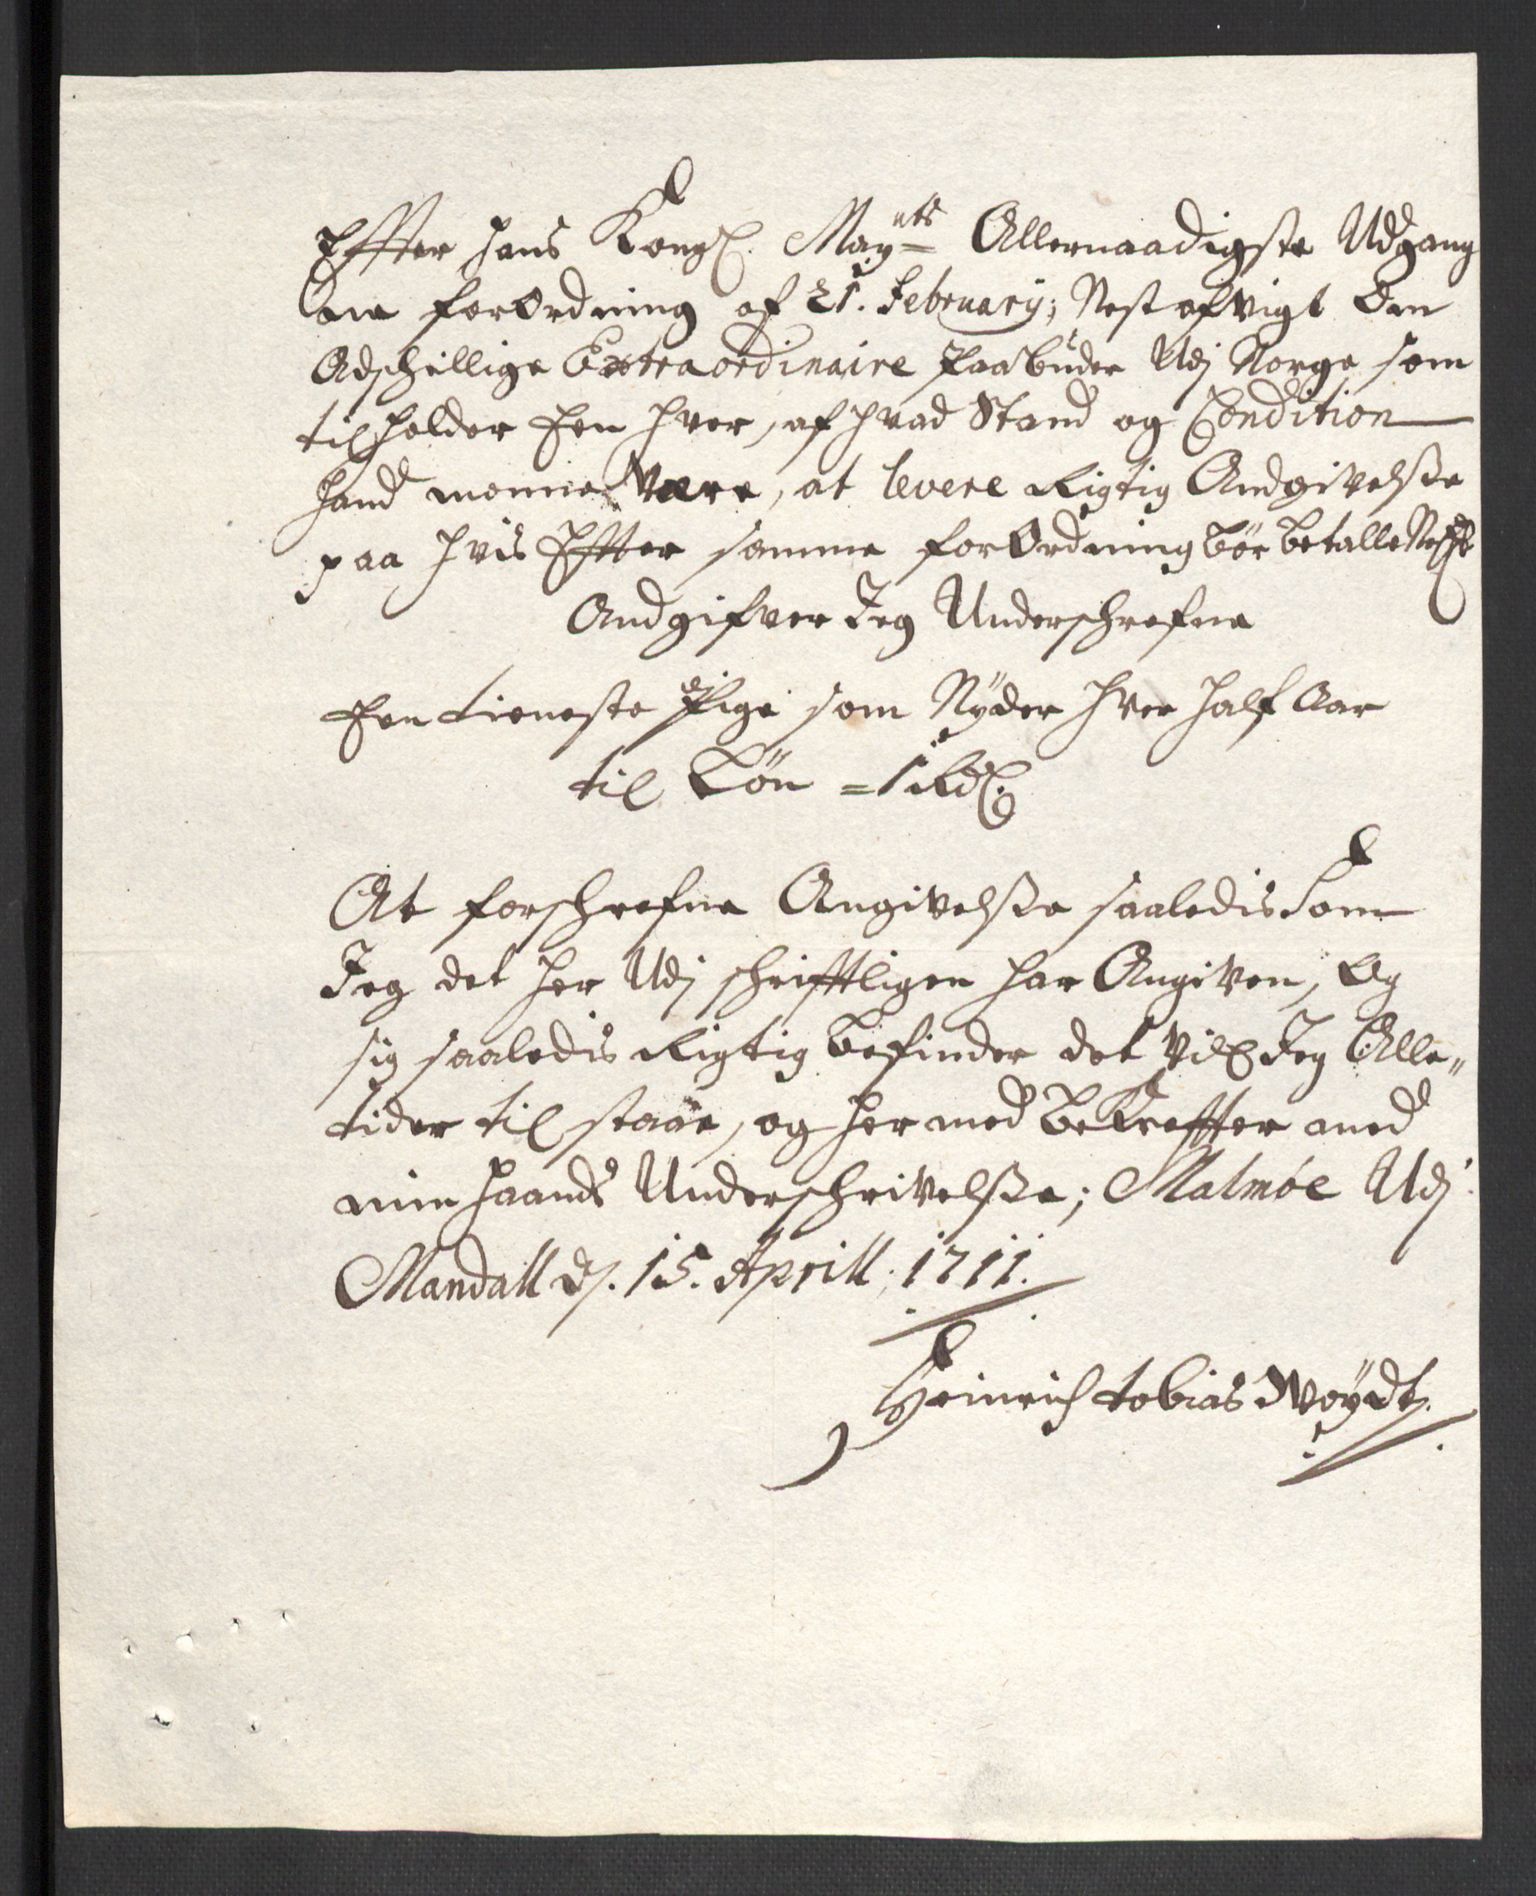 Effter hans Kongl. Mayts Allernaadigste Udgang
ne forOrdning af 21. February; Nest afvigt Om
Adschillige Extraordinaire Paabuder Udj Norge som
tilholder Een hver, af hvad Stand og Condition
hand monne være, at levere Rigtig Andgivelsse
paa hvis Effter samme forOrdning bør betalle
Andgifver Jeg Underschrefne
Een tieneste Pige som Nÿder hver half Aar
til Løn = 1 Rdl.
At forschrefne Angivelsse saaledis Som
Jeg det her Udj schrifftligen har Angiven, Og
sig saaledis Rigtig befinder det vil Jeg Alle„
tider til staae, og her med bekreffter med
min haands Underschrivelsse; Malmøe Udj
Mandall ds. 15. Aprill. 1711.
Heinrich tobias Woÿdt.